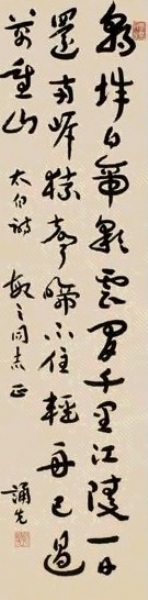 朝辭白帝彩雲間千里江陵一日
還兩岸猿聲啼不住輕舟已過
萬重山
太白詩 敏之同志正
誦先